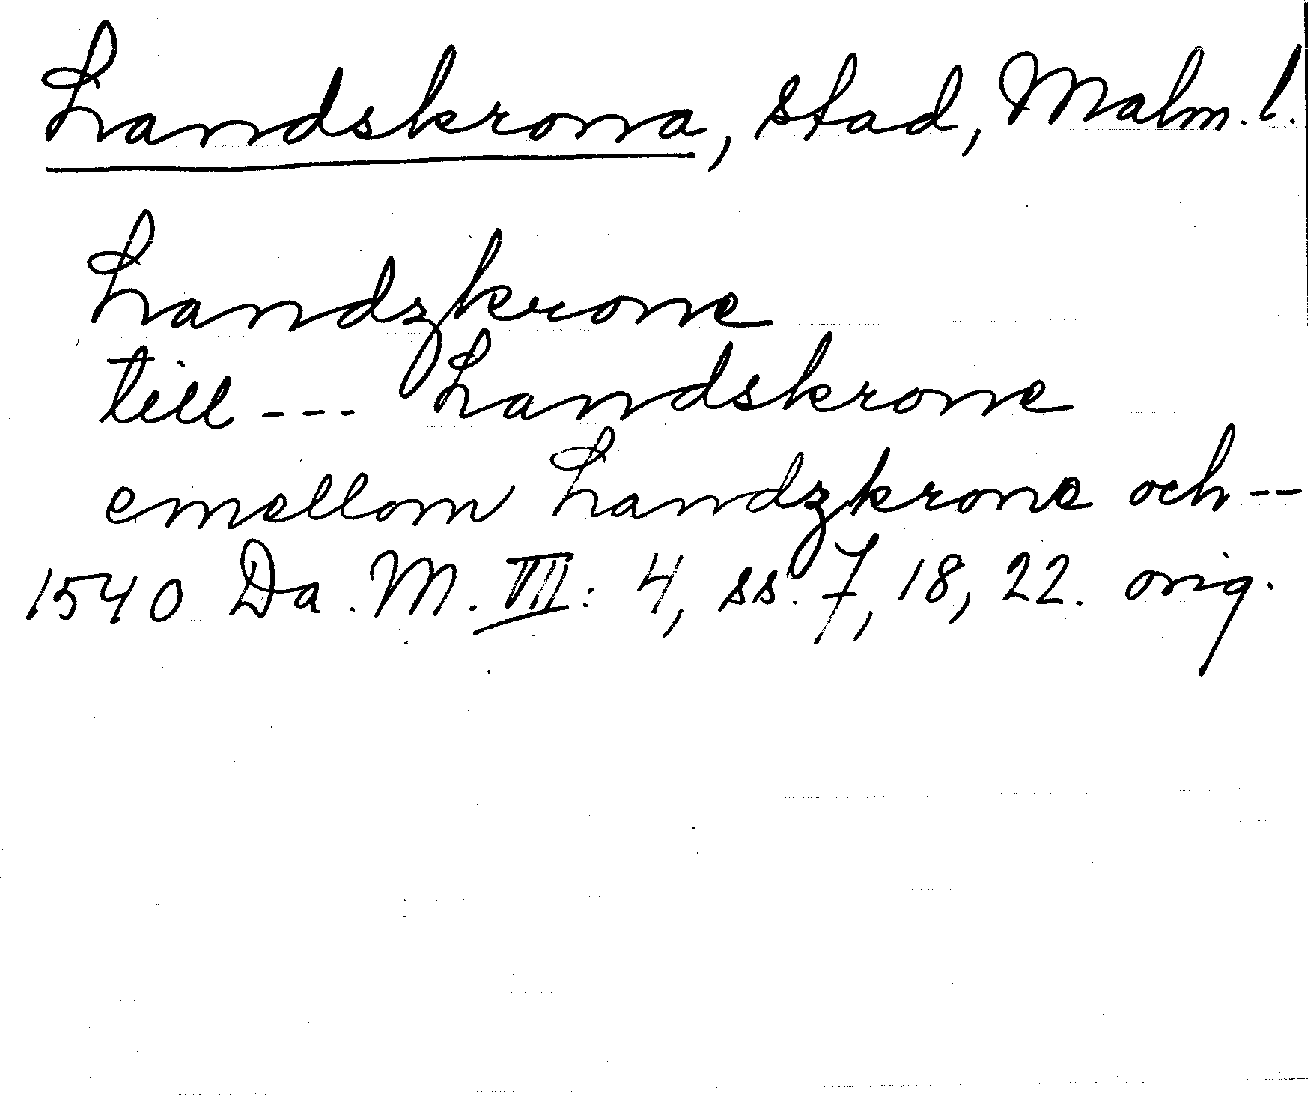 Landskrona, stad, Malm. l.
Landzkrone
till --- Landskrone
emellom Landzkrone och --
1540 Da. M. III: 4, ss. 7, 18, 22. orig.